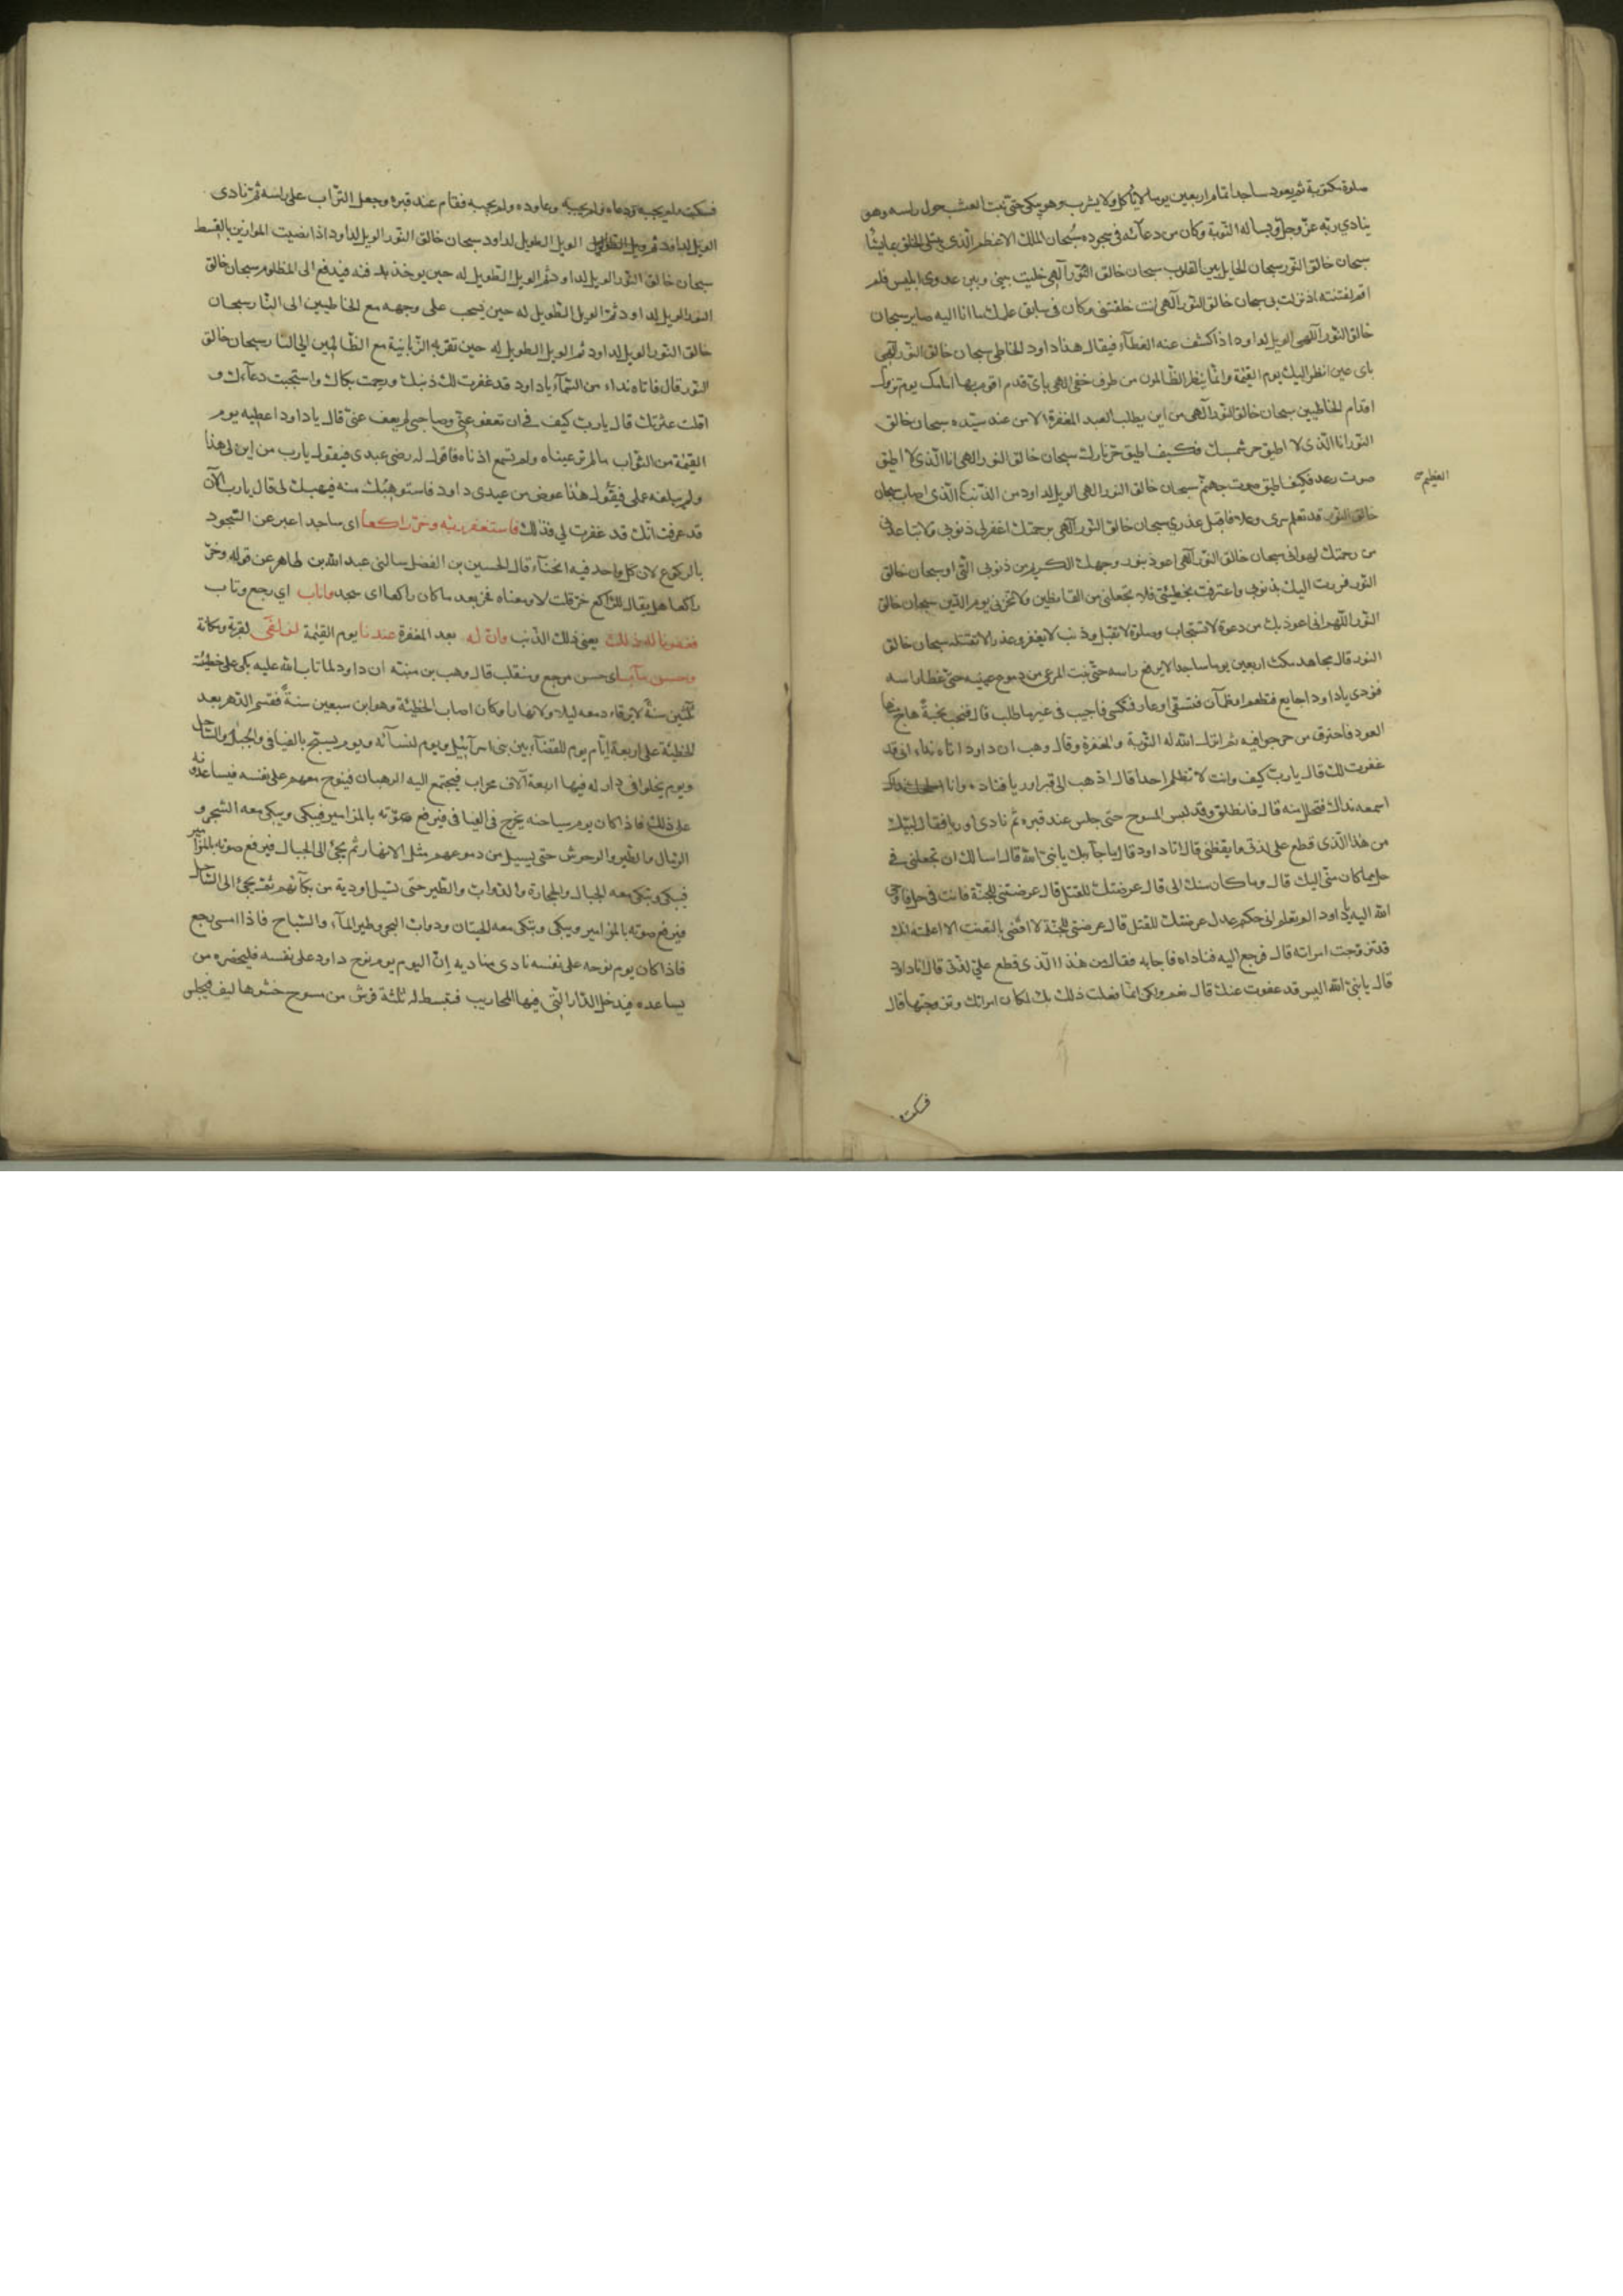 صلوة مكتوبة ثم يعود ساجدا تمام اربعين يوما لا ياكل ولا يشرب وهو يبكى حتى نبت العشب حول راسه وهو
ينادي ربه عز وجل ويساله التوبة وكان من دعآئه فى سجوده سبحان الملك الاعظم الذى يبتلى الخلق بما يشآ
سبحان خالق النور سبحان الحايل بين القلوب سبحان خالق النور آلهى خليت بينى وبين عدوى ابليس فلم
اقم لفتنته اذ نزلت بى سبحان خالق النور آلهى انت خلقتنى وكان فى سابق علمك ما انا اليه صاير سبحان
خالق النور آلهى الويل لداود اذا كشف عنه الغطآء فيقال هذا داود الخاطى سبحان خالق النور آلهى
باى عين انظر اليك يوم القيمة وانما ينظر الظالمون من طرف خفى الهى باى قدم اقوم بها امامك يوم تزول
اقدام الخاطيين سبحان خالق النور آلهى من اين يطلب العبد المغفرة الا من عند سيده سبحان خالق
النور انا الذى لا اطيق حر شمسك فكيف اطيق حر نارك سبحان خالق النور الهى انا الذى لا اطيق
صوت رعد فكيف اطيق صوت جهنم سبحان خالق النور الهى الويل لداود من الذنب الذى اصاب سبحان
العظيم
خالق النور قد تعلم سرى وعلا فاقبل عذري سبحان خالق النور آلهى برحمتك اغفر لى ذنوبى ولا تباعدنى
من رحمتك لهوانى سبحان خالق النور آلهى اعوذ بنور وجهك الكريم من ذنوبى التى او سبحان خالق
النور فررت اليك بذنوبى واعترفت بخطيئتى فلا تجعلنى من القانطين ولا تخزنى يوم الدين سبحان خالق
النور اللهم انى اعوذ بك من دعوة لا تستجاب وصلوة لا تقبل وذنب لا يغفر وعذر لا تقبله سبحان خالق
النور قال مجاهد مكث اربعين يوما ساجدا لا يرفع راسه حتى نبت المرعى من دموع عينيه حتى غطا راسه
فنودى يا داود اجايع فتطعم او ظمآن فتسقى او عار فتكسى فاجيب فى غير ما طلب قال فنحب نحبة هاج منها
العود فاحترق من حر جوافيه ثم انزل الله له التوبة والمغفرة وقال وهب ان داود اتاه نداء انى قد
غفرت لك قال يارب كيف وانت لا تظلم احدا قال اذهب الى قبر اوريا فناده وانا اسمعه نداك
اسمعه نداك فتحلل منه قال فانطلق وقد لبس المسوح حتى جلس عند قبره ثم نادى اوريا فقال لبيك
من هذا الذى قطع على لذتى وايقظنى قال انا داود قال ما جآء بك يا نبى الله قال اسالك ان تجعلنى فى
حل مما كان منى اليك قال وما كان منك الى قال عرضتك للقتل قال عرضتنى للجنة فانت فى حل فاوحى
الله اليه يا داود الم تعلم انى حكم عدل لا اقضى بالتعنت الا اعلمته انك
قد تزوجت امراته قال فرجع اليه فناداه فاجابه فقال من هذا الذى قطع على لذتى قال انا داود
قال يا نبى الله اليس قد عفوت عنك قال نعم ولكن انما فعلت ذلك بك لمكان امراتك وتزوجتها قال
فسكت
فسكت ولم يجبه ودعاه ولم يجبه وعاوده ولم يجبه فقام عند قبره وجعل التراب على راسه ثم نادى
الويل لداود ثم الويل الطويل لداود سبحان خالق النور الويل لداود اذا نصبت الموازين بالقسط
سبحان خالق النور الويل لداود ثم الويل الطويل له حين يوخذ بذقنه فيدفع الى المظلوم سبحان خالق
النور الويل لداود ثم الويل الطويل له حين يسحب على وجهه مع الخاطيين الى النار سبحان
خالق النور الويل لداود ثم الويل الطويل له حين تقربه الزبانية مع الظالمين الى النار سبحان خالق
النور قال فاتاه نداء من السمآء يا داود قد غفرت لك ذنبك ورحمت بكاك واستجبت دعآءك و
اقلت عثرتك قال يارب كيف لى ان تعفو عنى وصاحبى لم يعف عنى قال يا داود اعطيه يوم
القيمة من الثواب ما لم تر عيناه ولم تسمع اذناه فاقول له رضى عبدى فيقول يارب من اين لى هذا
ولم يبلغه عملى فيقول هذا عوض من عبدى داود فاستوهبك منه فيهبك لى قال يارب الآن
قد عرفت انك قد غفرت لى فذلك فاستغفر ربه وخر راكعا اى ساجدا عبر عن السجود
بالركوع لان كل واحد فيه انحنآء قال الحسين بن الفضل سالنى عبد الله بن طاهر عن قوله وخر
راكعا هل يقال للراكع خر قلت لا ومعناه فخر بعد ما كان راكعا اى سجد واناب اي رجع وتاب
فغفرنا له ذلك يعنى ذلك الذنب وان له بعد المغفرة عندنا يوم القيمة لزلفى لقربة ومكانة
وحسن مآب اى حسن مرجع ومنقلب قال وهب بن منبه ان داود لما تاب الله عليه بكى على خطيئته
ثلثين سنة لا يرقاء دمعه ليلا ولا نهارا وكان اصاب الخطيئة وهو ابن سبعين سنة فقسم الدهر بعد
الخطيئة على اربعة ايام يوم للقضآء بين بنى اسرآئيل ويوم لنسآئه ويوم يسبح بالفيافى والجبال والساحل
ويوم يخلوا فى دار له فيها اربعة آلاف محراب فيجتمع اليه الرهبان فينوح معهم على نفسه فيساعدونه
على ذلك فاذا كان يوم سياحته يخرج فى الفيافى فيرفع صوته بالمزامير فيبكى ويبكى معه الشجر و
الرمال والطير والوحوش حتى يسيل من دموعهم مثل الانهار ثم يجئ الى الجبال فيرفع صوته بالمزآمير
فيبكى وتبكى معه الجبال والحجارة والدواب والطير حتى تسيل اودية من بكآئهم ثم يجئ الى الساحل
فيرفع صوته بالمزامير ويبكى وتبكى معه الحيتان ودواب البحر وطير المآء والسباح فاذا امسى رجع
فاذا كان يوم نوحه على نفسه نادى مناديه ان اليوم يوم نوح داود على نفسه فليحضره من
يساعده فيدخل الدار التى فيها المحاريب فتبسط له ثلثة فرش من مسوح حشوها ليف فيجلس